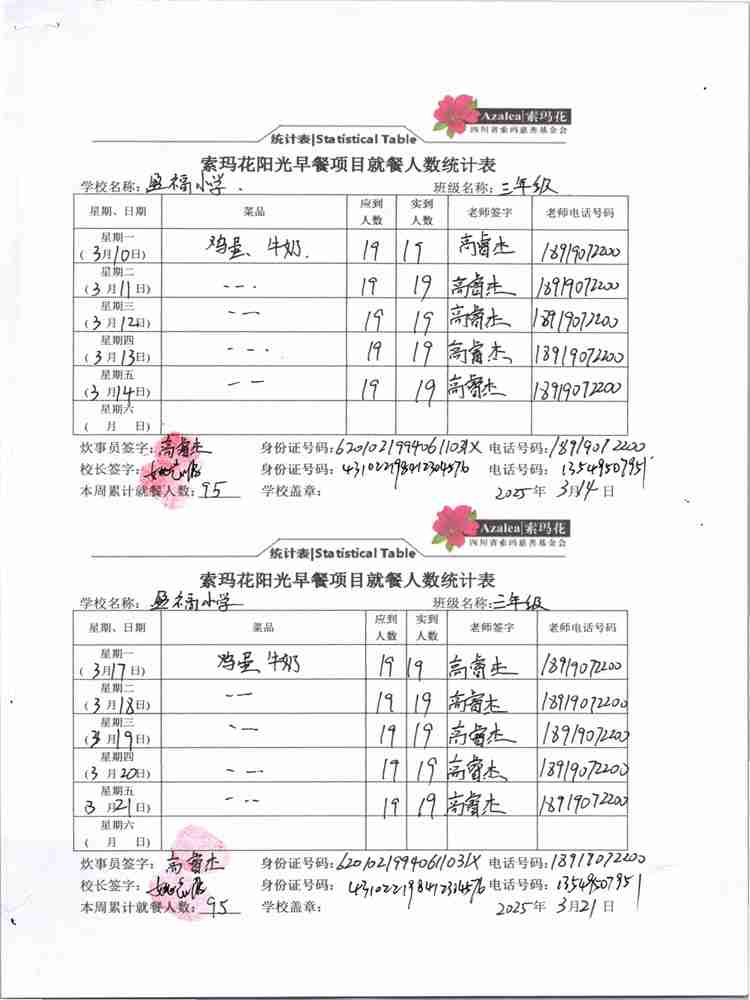 Azalea|索玛花
四川省索玛慈善基金会
统计表|Statistical Table
索玛花阳光早餐项目就餐人数统计表
学校名称：盈福小学. 班级名称：三年级
星期、日期 菜品 应到人数 实到人数 老师签字 老师电话号码
星期一 (3月10日) 鸡蛋、牛奶. 19 19 高睿杰 18919072200
星期二 (3月11日) --. 19 19 高睿杰 18919072200
星期三 (3月12日) -- 19 19 高睿杰 18919072200
星期四 (3月13日) --. 19 19 高睿杰 18919072200
星期五 (3月14日) -- 19 19 高睿杰 18919072200
星期六 ( 月 日)
炊事员签字：高睿杰 身份证号码：62010219940611031X 电话号码：18919072200
校长签字： 身份证号码： 电话号码： 13549507951
本周累计就餐人数：95 学校盖章： 2025年 3月14日
Azalea|索玛花
四川省索玛慈善基金会
统计表|Statistical Table
索玛花阳光早餐项目就餐人数统计表
学校名称：盈福小学 班级名称：三年级
星期、日期 菜品 应到人数 实到人数 老师签字 老师电话号码
星期一 (3月17日) 鸡蛋、牛奶 19 19 高睿杰 18919072200
星期二 (3月18日) -- 19 19 高睿杰 18919072200
星期三 (3月19日) -- 19 19 高睿杰 18919072200
星期四 (3月20日) -- 19 19 高睿杰 18919072200
星期五 (3月21日) -- 19 19 高睿杰 18919072200
星期六 ( 月 日)
炊事员签字：高睿杰 身份证号码：62010219940611031X 电话号码：18919072200
校长签字： 身份证号码： 电话号码：13549507951
本周累计就餐人数：95 学校盖章： 2025年 3月21日